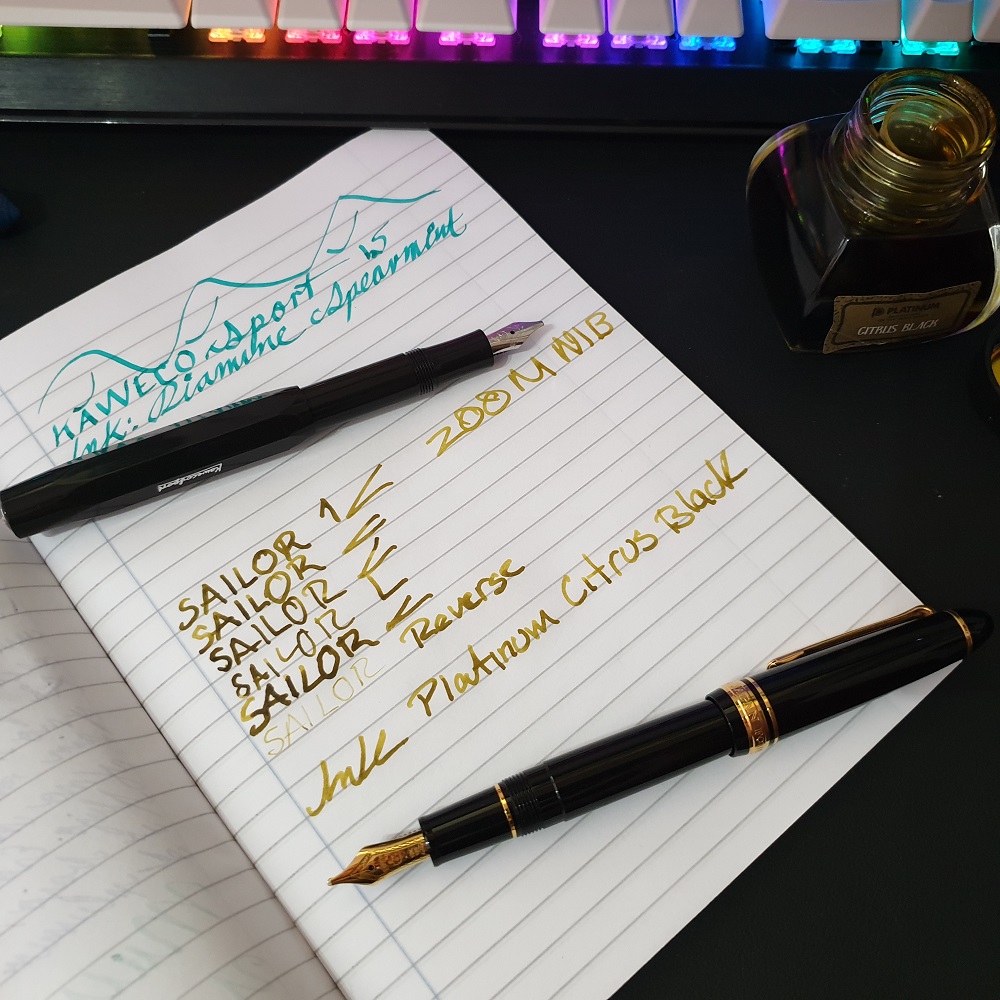 KAWECO Sport 1.5
Ink: Diamine Spearment
Kaweco Sport
ZOOM NIB
SAILOR 1
SAILOR
SAILOR
SAILOR L
SAILOR
SAILOR Reverse
Ink Platinum Citrus Black
PLATINUM
CITRUS BLACK